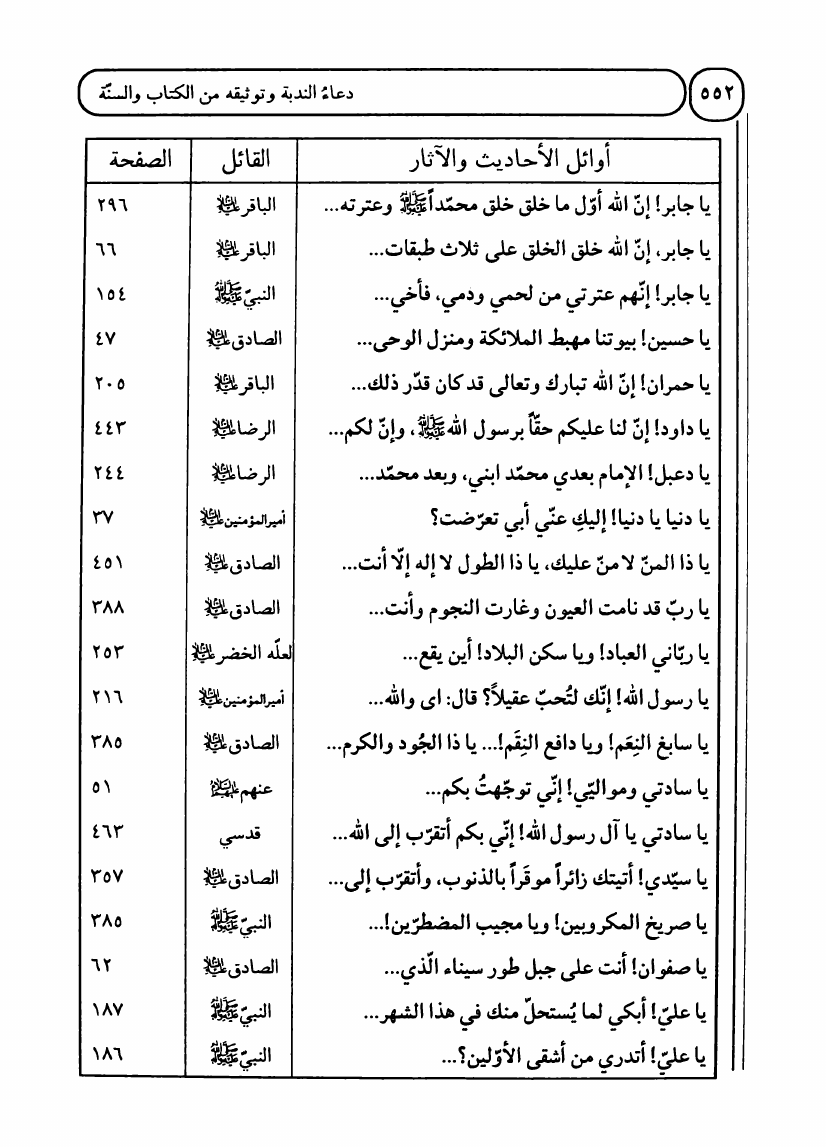 ٥٥٢ دعاءُ الندبة وتوثيقه من الكتاب والسنّة
أوائل الأحاديث والآثار القائل الصفحة
يا جابر! إنّ الله أوّل ما خلق خلق محمّداً ﷺ وعترته... الباقر عليه السلام ٢٩٦
يا جابر، إنّ الله خلق الخلق على ثلاث طبقات... الباقر عليه السلام ٦٦
يا جابر! إنّهم عترتي من لحمي ودمي، فأخي... النبيّ ﷺ ١٥٤
يا حسين! بيوتنا مهبط الملائكة ومنزل الوحى... الصادق عليه السلام ٤٧
يا حمران! إنّ الله تبارك وتعالى قد كان قدّر ذلك... الباقر عليه السلام ٢٠٥
يا داود! إنّ لنا عليكم حقّاً برسول الله ﷺ، وإنّ لكم... الرضا عليه السلام ٤٤٣
يا دعبل! الإمام بعدي محمّد ابني، وبعد محمّد... الرضا عليه السلام ٢٤٤
يا دنيا يا دنيا! إليكِ عنّي أبي تعرّضت؟ أمير المؤمنين عليه السلام ٣٧
يا ذا المنّ لا منّ عليك، يا ذا الطول لا إله إلّا أنت... الصادق عليه السلام ٤٥١
يا ربّ قد نامت العيون وغارت النجوم وأنت... الصادق عليه السلام ٣٨٨
يا ربّاني العباد! ويا سكن البلاد! أين يقع... لعلّه الخضر عليه السلام ٢٥٣
يا رسول الله! إنّك لتُحبّ عقيلاً؟ قال: اى والله... أمير المؤمنين عليه السلام ٢١٦
يا سابغ النِعَم! ويا دافع النِقَم!... يا ذا الجُود والكرم... الصادق عليه السلام ٣٨٥
يا سادتي ومواليّي! إنّي توجّهتُ بكم... عنهم عليهم السلام ٥١
يا سادتي يا آل رسول الله! إنّي بكم أتقرّب إلى الله... قدسي ٤٦٣
يا سيّدي! أتيتك زائراً موقَراً بالذنوب، وأتقرّب إلى... الصادق عليه السلام ٣٥٧
يا صريخ المكروبين! ويا مجيب المضطرّين!... النبيّ ﷺ ٣٨٥
يا صفوان! أنت على جبل طور سيناء الّذي... الصادق عليه السلام ٦٢
يا عليّ! أبكي لما يُستحلّ منك في هذا الشهر... النبيّ ﷺ ١٨٧
يا عليّ! أتدري من أشقى الأوّلين؟... النبيّ ﷺ ١٨٦